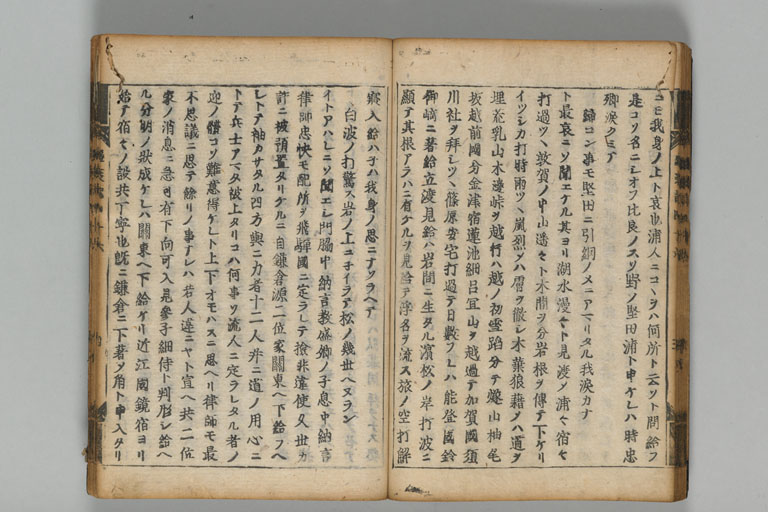 ニモ我身ノ上ト哀也浦人ニコヽヲハ何所ト云ソト問給フ
是コソ名ニシオフ比良ノスソ野ノ堅田浦ト申ケレハ時忠
卿涙クミテ
歸コン事モ堅田ニ引網ノメニアマリタル我涙カナ
ト最哀ニソ聞エケル其ヨリ湖水漫々ト見渡ノ浦々宿々
打過ツヽ敦賀ノ中山遙々ト木間ヲ分岩根ヲ傳テ下ケリ
イツシカ打時雨ツヽ嵐烈ケハ雪ヲ散シ木葉狼藉ノハ道ヲ
埋 乳山木邊峠ヲ越行ハ越ノ初雪踏分テ 山柚尾
坂越前國分金津宿蓮池細呂宜山ヲ越過テ加賀國須
川社ヲ拜シツヽ篠原安宅打過テ日數フレハ能登國鈴
御崎ニ著給立渡見給ハ岩間ニ生タル濱松ノ岸打波ニ
顯テ其根アラハニ有ケルヲ見給テ浮名ヲ流ス旅ノ空打解
寐入給ハ子ハ我身ノ思ニナソラヘテ
白波ノ打驚ス岩ノ上ニ子イラテ松ノ幾世ヘヌラン
イトアハレニソ聞エシ門脇中納言教盛卿ノ子息中納言
律師忠快モ配所ヲ飛驒國ニ定ラレテ檢非違使久世カ
許ニ被預置タリケルニ自鎌倉源二位家關東ヘ下給フヘ
シトテ袖カサタル四方輿ニ力者十二人并ニ道ノ用心ニ
トテ兵士アマタ被上タリコハ何事ソ流人ニ定ラレタル者ノ
迎ノ體コソ難意得ケレト上下オモハスニ思ヘリ律師モ最
不思議ニ思テ餘リノ事ナレハ若人違ニヤト宣ヘ共二位
家ノ消息ニ急可有下向可入見參子細侍ト判形シ給ヘ
ル分明ノ狀成ケレハ關東ヘ下給ケリ近江國鏡宿ヨリ
始テ宿々ノ設共丁寧也既ニ鎌倉ニ下著ノ角ト申入タリ